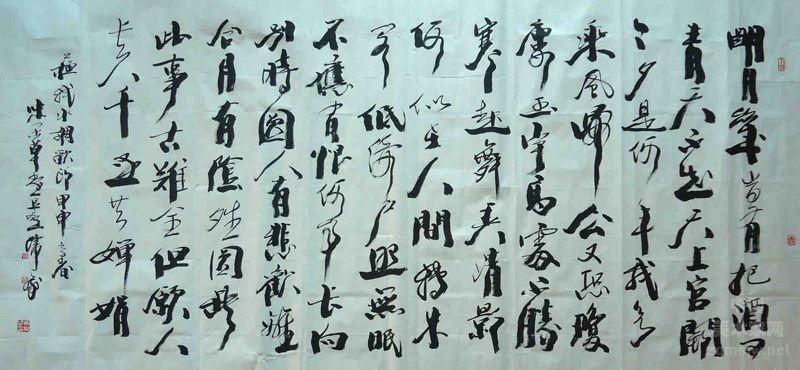 明月幾時有把酒問
青天不知天上宮闕
今夕是何年我欲
乘風歸去又恐瓊
樓玉宇高處不勝
寒起舞弄清影
何似在人間轉朱
閣低綺户照無眠
不應有恨何事長向
別時圓人有悲歡離
合月有陰晴圓缺
此事古難全但願人
長久千里共嬋娟
甲申